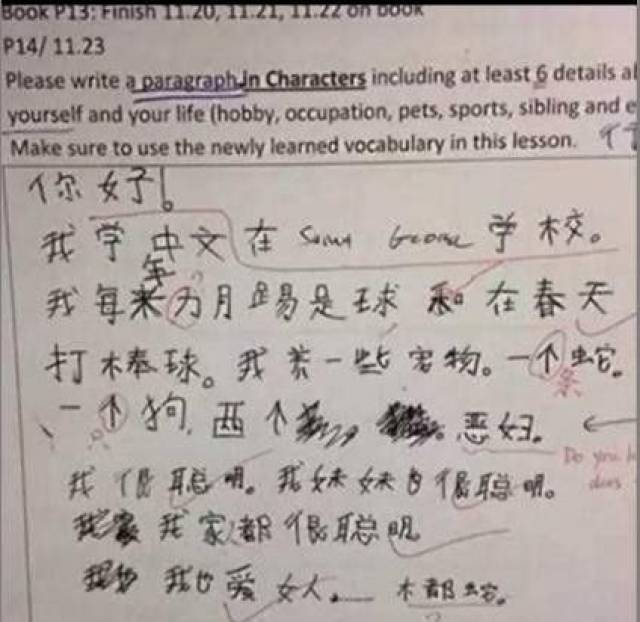 Book P13: Finish 11.20, 11.21, 11.22 on book
P14/ 11.23
Please write a paragraph in Characters including at least 6 details
yourself and your life (hobby, occupation, pets, sports, sibling and
Make sure to use the newly learned vocabulary in this lesson.
你好!
我学中文在 George 学校。
年
我每来 月踢是球和在春天
打棒球。我养一些宠物。一个蛇。
条
一个狗, 西个 恶妇。
只
Do you
does
我很聪明。我妹妹也很聪明。
我家都很聪明
我也爱女人。 都蛇。